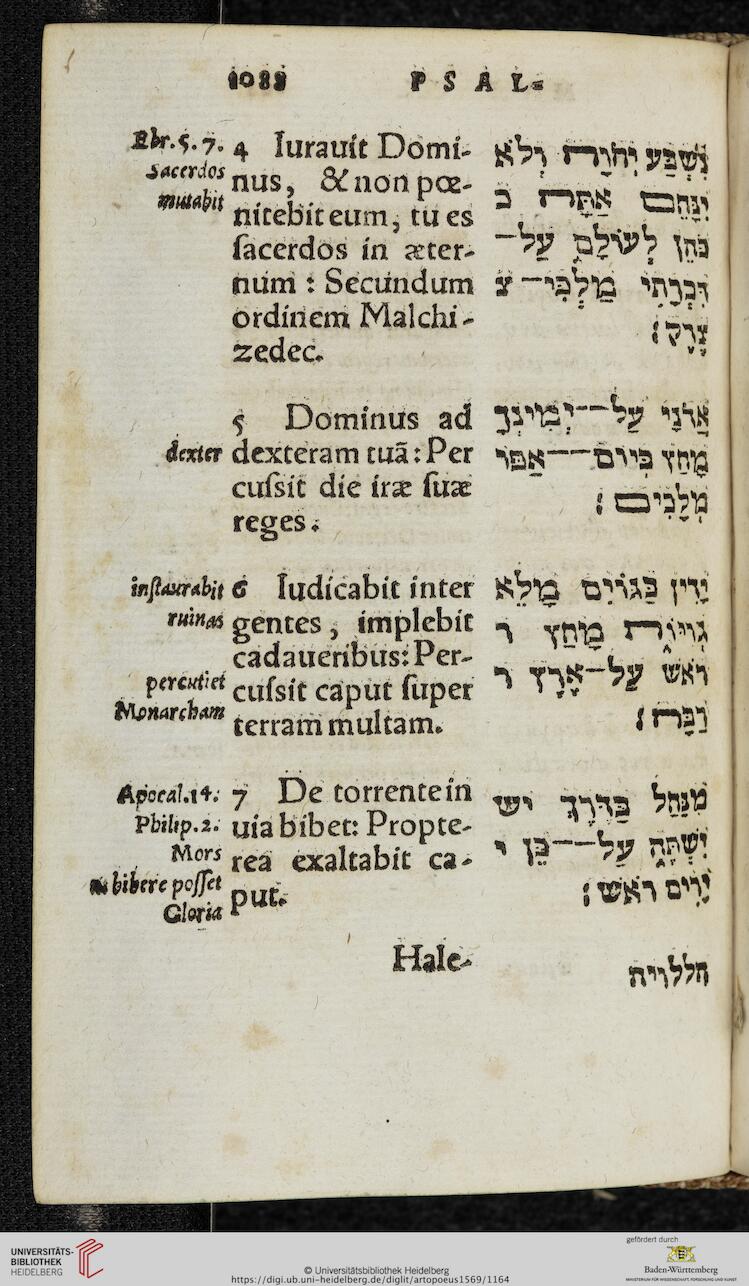 1088 PSAL-
Ebr.5.7.
Sacerdos
mutabit
4 Iurauit Domi-
nus, & non pœ-
nitebit eum, tu es
ſacerdos in æter-
num : Secundum
ordinem Malchi-
zedec.
נִשְׁבַּע יְהוָה וְלֹא
יִנָּחֵם אַתָּה כ
כֹהֵן לְעוֹלָם עַל־
דִּבְרָתִי מַלְכִּי־ צ
צֶדֶק׃
dexter
5 Dominus ad
dexteram tuã : Per
cuſsit die iræ ſuæ
reges.
אֲדֹנָי עַל־־יְמִינְךָ
מָחַץ בְּיוֹם־־אַפּוֹ
מְלָכִים׃
inſtaurabit
ruinas
percutiet
Monarcham
6 Iudicabit inter
gentes, implebit
cadaueribus: Per-
cuſsit caput ſuper
terram multam.
יָדִין בַּגּוֹיִם מָלֵא
גְוִיּוֹת מָחַץ ר
רֹאשׁ עַל־אֶרֶץ ר
רַבָּה׃
Apocal.14.
Philip.2.
Mors
bibere poſſet
Gloria
7 De torrente in
uia bibet: Propte-
rea exaltabit ca-
put.
מִנַּחַל בַּדֶּרֶךְ יש
יִשְׁתֶּה עַל־־כֵּן י
יָרִים רֹאשׁ׃
Hale-
הללויה
UNIVERSITÄTS-
BIBLIOTHEK
HEIDELBERG
© Universitätsbibliothek Heidelberg
https://digi.ub.uni-heidelberg.de/diglit/artopoeus1569/1164
gefördert durch
Baden-Württemberg
MINISTERIUM FÜR WISSENSCHAFT, FORSCHUNG UND KUNST